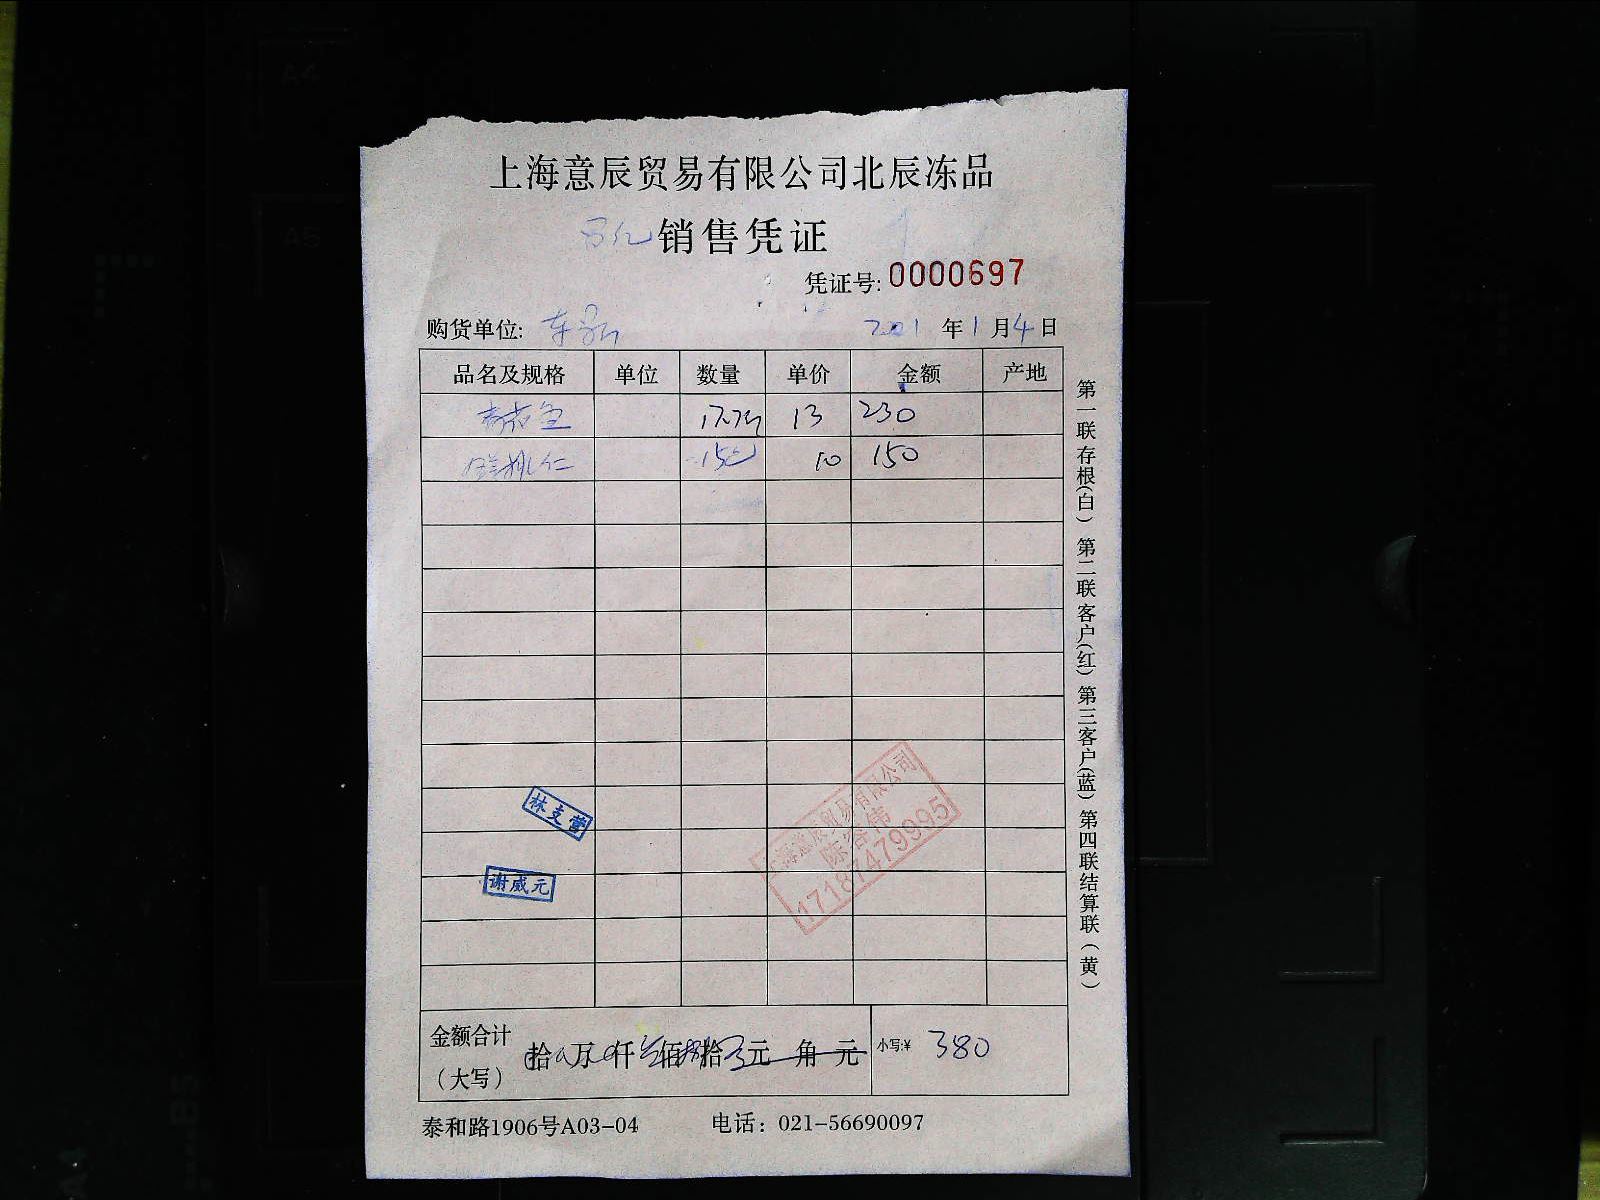 上海意辰贸易有限公司北辰冻品
销售凭证
凭证号: 0000697
购货单位: 年1月4日
品名及规格 单位 数量 单价 金额 产地
13 230
鲜桃仁 10 150
林支营
谢威元
上海意辰贸易有限公司
17187479995
金额合计
(大写) 拾 万 仟 佰 拾 元 角 元 小写:¥ 380
泰和路1906号A03-04 电话: 021-56690097
第一联存根(白) 第二联客户(红) 第三客户(蓝) 第四联结算联(黄)